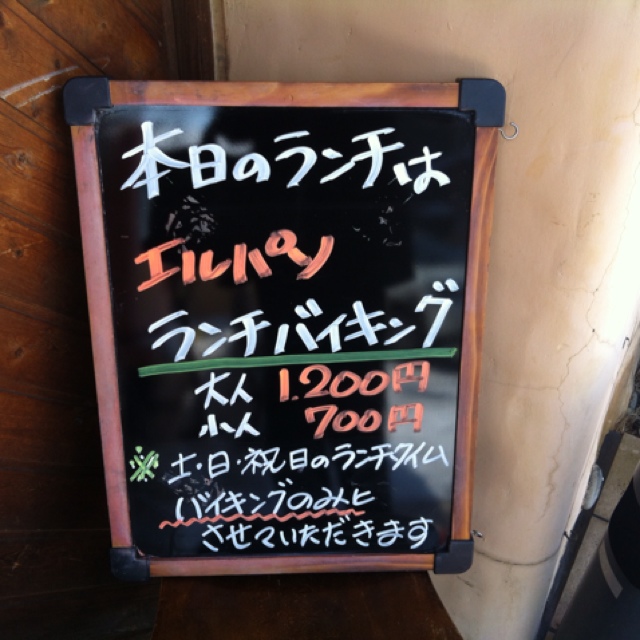 本日のランチは
エルパソ
ランチバイキング
大人 1.200円
小人 700円
※ 土・日・祝日のランチタイム
バイキングのみと
させていただきます